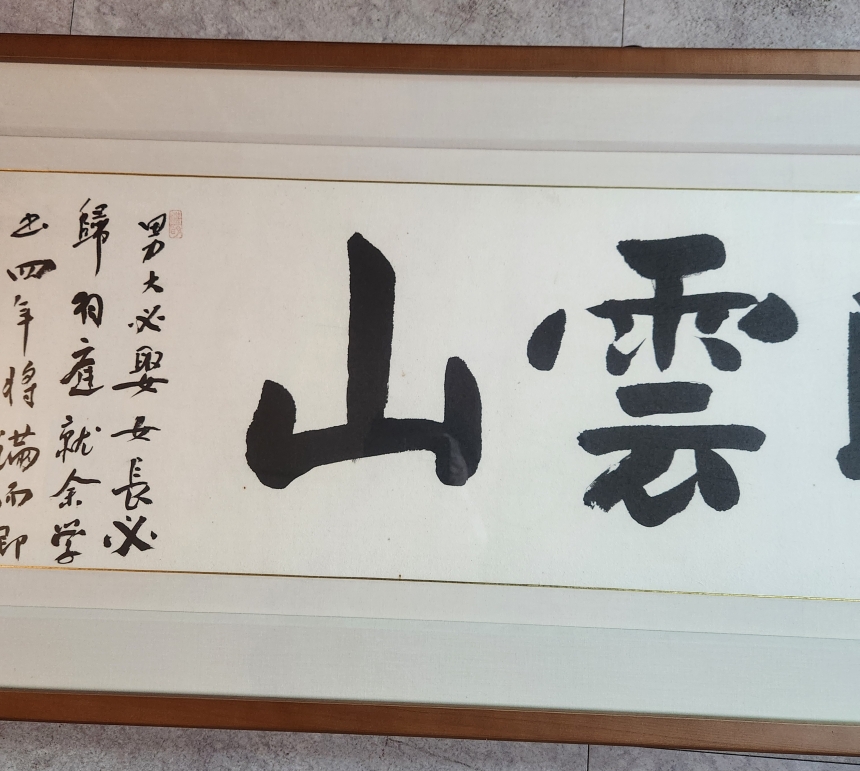 雲山
男大必娶女長必
歸羽庭就余学
出四年将滿而即